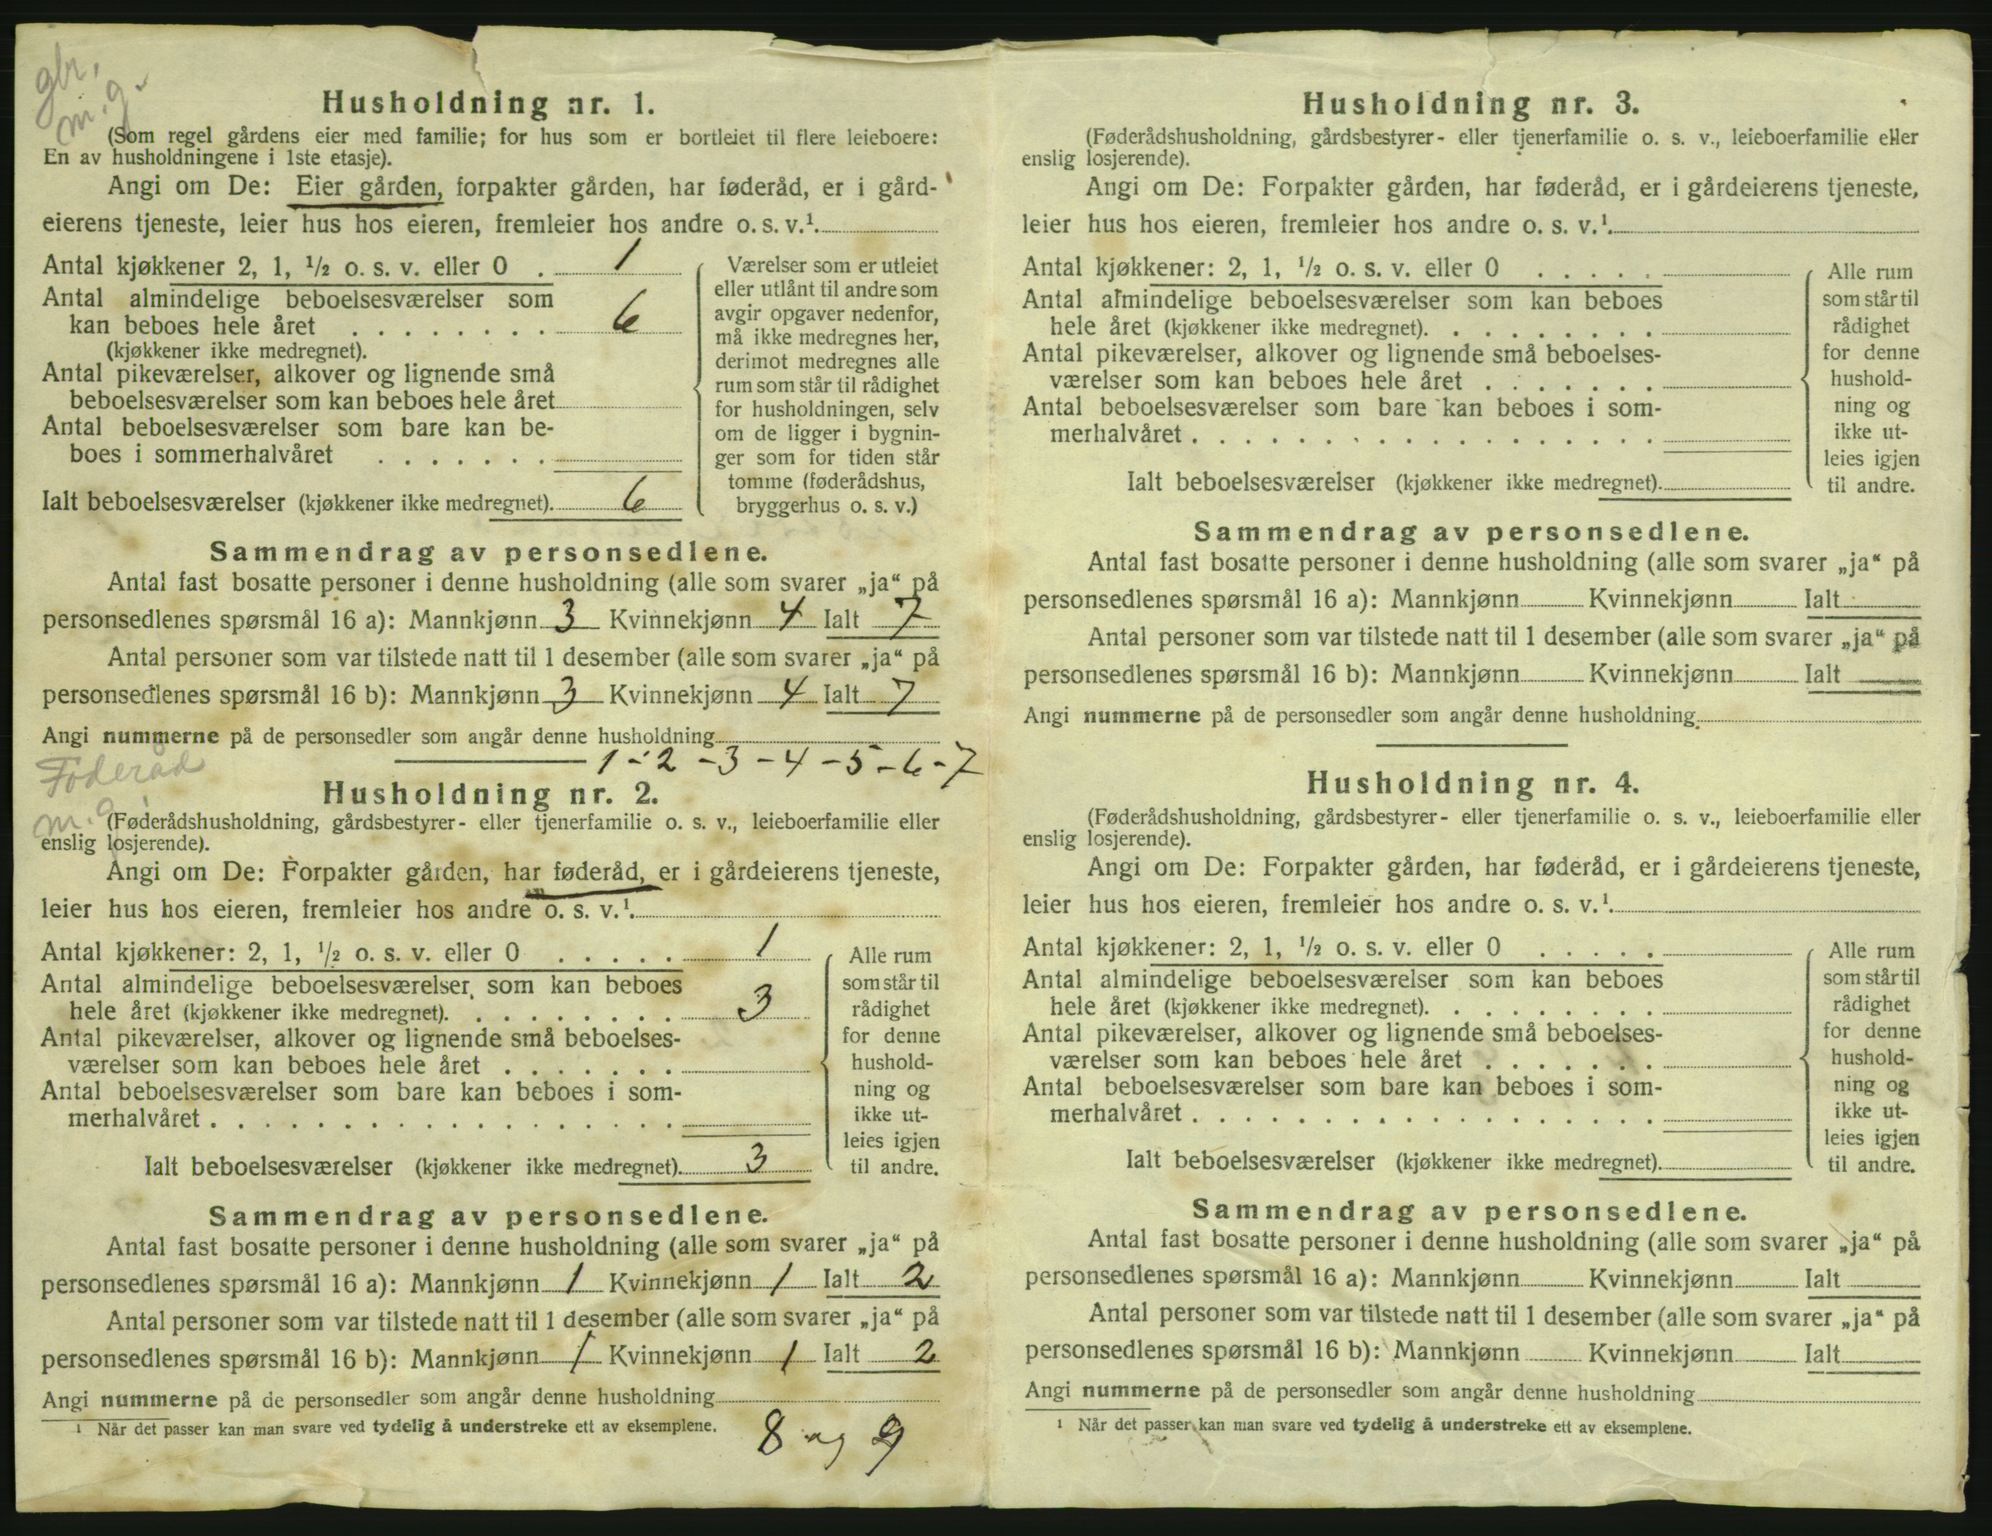 gbr.
m. g.
Husholdning nr. 1.
(Som regel gårdens eier med familie; for hus som er bortleiet til flere leieboere:
En av husholdningene i 1ste etasje).
Angi om De: Eier gården, forpakter gården, har føderåd, er i gård-
eierens tjeneste, leier hus hos eieren, fremleier hos andre o. s. v.¹
Antal kjøkkener 2, 1, ½ o. s. v. eller 0 . 1
Antal almindelige beboelsesværelser som
kan beboes hele året . . . . . . . . 6
(kjøkkener ikke medregnet).
Antal pikeværelser, alkover og lignende små
beboelsesværelser som kan beboes hele året
Antal beboelsesværelser som bare kan be-
boes i sommerhalvåret . . . . . . .
Ialt beboelsesværelser (kjøkkener ikke medregnet). 6
Værelser som er utleiet
eller utlånt til andre som
avgir opgaver nedenfor,
må ikke medregnes her,
derimot medregnes alle
rum som står til rådighet
for husholdningen, selv
om de ligger i bygnin-
ger som for tiden står
tomme (føderådshus,
bryggerhus o. s. v.)
Sammendrag av personsedlene.
Antal fast bosatte personer i denne husholdning (alle som svarer „ja“ på
personsedlenes spørsmål 16 a): Mannkjønn 3 Kvinnekjønn 4 Ialt 7
Antal personer som var tilstede natt til 1 desember (alle som svarer „ja“ på
personsedlenes spørsmål 16 b): Mannkjønn 3 Kvinnekjønn 4 Ialt 7
Angi nummerne på de personsedler som angår denne husholdning
1 - 2 - 3 - 4 - 5 - 6 - 7
Føderåd
m. g.
Husholdning nr. 2.
(Føderådshusholdning, gårdsbestyrer- eller tjenerfamilie o. s. v., leieboerfamilie eller
enslig losjerende).
Angi om De: Forpakter gården, har føderåd, er i gårdeierens tjeneste,
leier hus hos eieren, fremleier hos andre o. s. v.¹.
Antal kjøkkener: 2, 1, ½ o. s. v. eller 0 . . . . . 1
Antal almindelige beboelsesværelser som kan beboes
hele året (kjøkkener ikke medregnet). . . . . . . . . 3
Antal pikeværelser, alkover og lignende små beboelses-
værelser som kan beboes hele året . . . . . . .
Antal beboelsesværelser som bare kan beboes i som-
merhalvåret . . . . . . . . . . . . . . . . . .
Ialt beboelsesværelser (kjøkkener ikke medregnet). 3
Alle rum
som står til
rådighet
for denne
hushold-
ning og
ikke ut-
leies igjen
til andre.
Sammendrag av personsedlene.
Antal fast bosatte personer i denne husholdning (alle som svarer „ja“ på
personsedlenes spørsmål 16 a): Mannkjønn 1 Kvinnekjønn 1 Ialt 2
Antal personer som var tilstede natt til 1 desember (alle som svarer „ja“ på
personsedlenes spørsmål 16 b): Mannkjønn 1 Kvinnekjønn 1 Ialt 2
Angi nummerne på de personsedler som angår denne husholdning
¹ Når det passer kan man svare ved tydelig å understreke ett av eksemplene.
8 og 9
Husholdning nr. 3.
(Føderådshusholdning, gårdsbestyrer- eller tjenerfamilie o. s. v., leieboerfamilie eller
enslig losjerende).
Angi om De: Forpakter gården, har føderåd, er i gårdeierens tjeneste,
leier hus hos eieren, fremleier hos andre o. s. v.¹.
Antal kjøkkener: 2, 1, ½ o. s. v. eller 0 . . . . .
Antal almindelige beboelsesværelser som kan beboes
hele året (kjøkkener ikke medregnet). . . . . . . . .
Antal pikeværelser, alkover og lignende små beboelses-
værelser som kan beboes hele året . . . . . . .
Antal beboelsesværelser som bare kan beboes i som-
merhalvåret . . . . . . . . . . . . . . . . . .
Ialt beboelsesværelser (kjøkkener ikke medregnet).
Alle rum
som står til
rådighet
for denne
hushold-
ning og
ikke ut-
leies igjen
til andre.
Sammendrag av personsedlene.
Antal fast bosatte personer i denne husholdning (alle som svarer „ja“ på
personsedlenes spørsmål 16 a): Mannkjønn Kvinnekjønn Ialt
Antal personer som var tilstede natt til 1 desember (alle som svarer „ja“ på
personsedlenes spørsmål 16 b): Mannkjønn Kvinnekjønn Ialt
Angi nummerne på de personsedler som angår denne husholdning
Husholdning nr. 4.
(Føderådshusholdning, gårdsbestyrer- eller tjenerfamilie o. s. v., leieboerfamilie eller
enslig losjerende).
Angi om De: Forpakter gården, har føderåd, er i gårdeierens tjeneste,
leier hus hos eieren, fremleier hos andre o. s. v.¹.
Antal kjøkkener: 2, 1, ½ o. s. v. eller 0 . . . . .
Antal almindelige beboelsesværelser som kan beboes
hele året (kjøkkener ikke medregnet). . . . . . . . .
Antal pikeværelser, alkover og lignende små beboelses-
værelser som kan beboes hele året . . . . . . .
Antal beboelsesværelser som bare kan beboes i som-
merhalvåret . . . . . . . . . . . . . . . . . .
Ialt beboelsesværelser (kjøkkener ikke medregnet).
Alle rum
som står til
rådighet
for denne
hushold-
ning og
ikke ut-
leies igjen
til andre.
Sammendrag av personsedlene.
Antal fast bosatte personer i denne husholdning (alle som svarer „ja“ på
personsedlenes spørsmål 16 a): Mannkjønn Kvinnekjønn Ialt
Antal personer som var tilstede natt til 1 desember (alle som svarer „ja“ på
personsedlenes spørsmål 16 b): Mannkjønn Kvinnekjønn Ialt
Angi nummerne på de personsedler som angår denne husholdning
¹ Når det passer kan man svare ved tydelig å understreke ett av eksemplene.